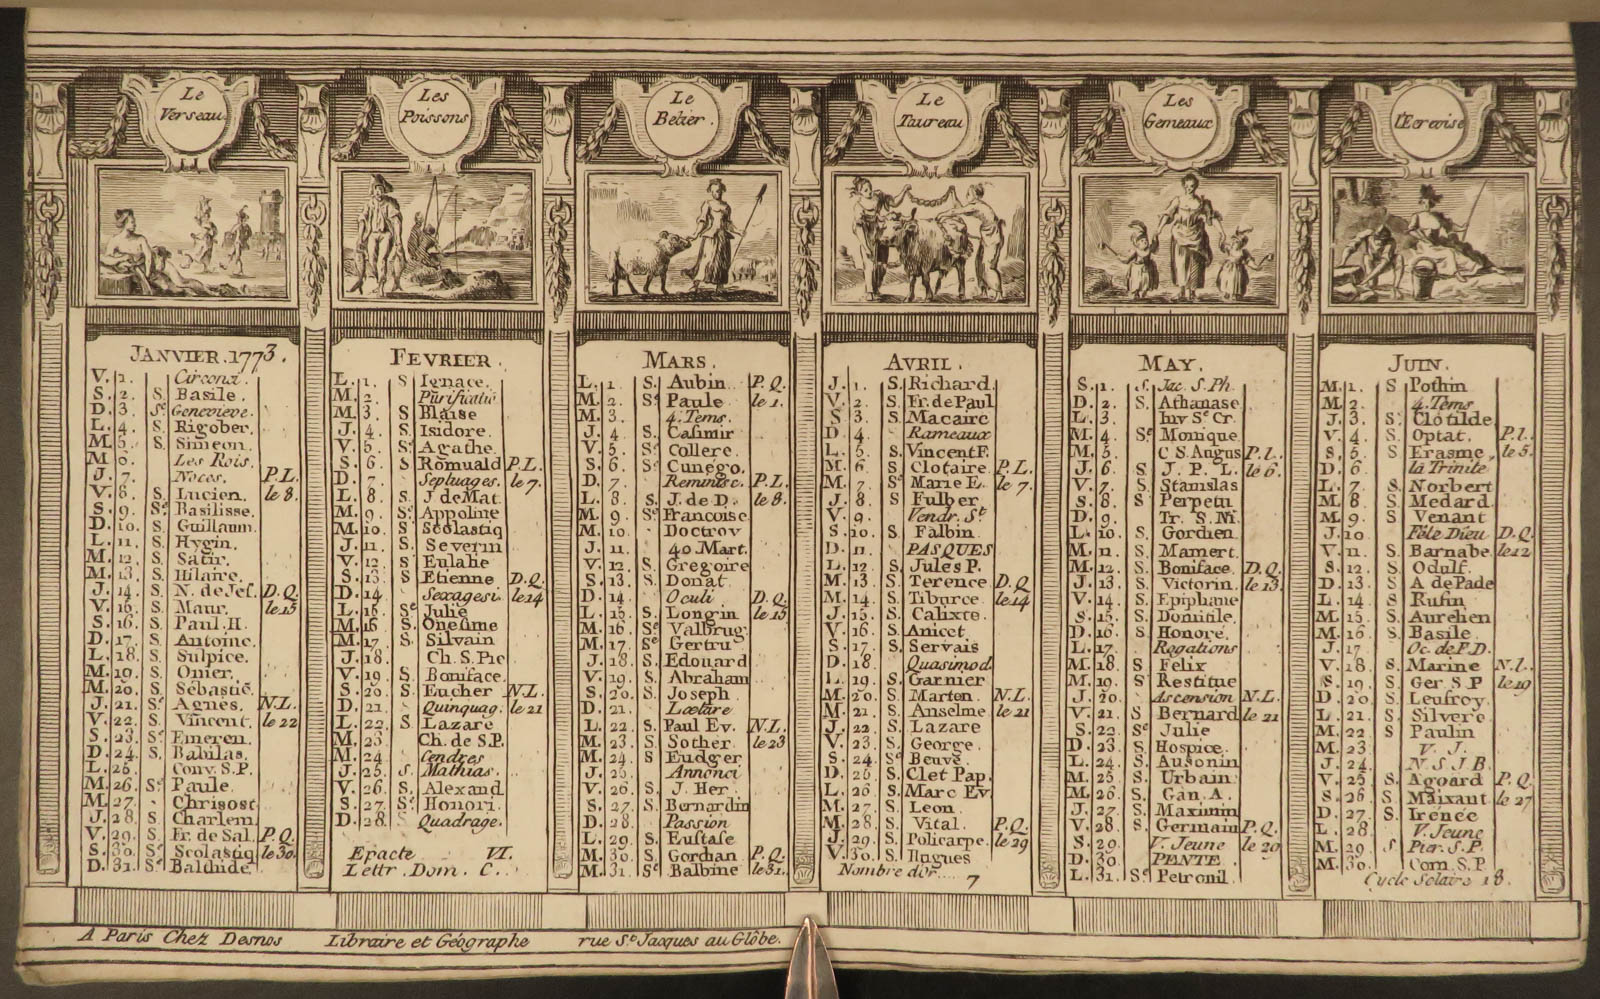 Le Verseau.
JANVIER. 1773.
V. 1. Circonci.
S. 2. S. Basile.
D. 3. Se Genevieve.
L. 4. S. Rigober.
M. 5. S. Simeon.
M. 6. Les Rois.
J. 7. Noces. P.L.
V. 8. S. Lucien. le 8.
S. 9. Se Basilisse.
D. 10. S. Guillaum.
L. 11. S. Hygin.
M. 12. S. Satir.
M. 13. S. Hilaire.
J. 14. S. N. de Jes. D.Q.
V. 15. S. Maur. le 15
S. 16. S. Paul. H.
D. 17. S. Antoine.
L. 18. S. Sulpice.
M. 19. S. Omer.
M. 20. S. Sébastie.
J. 21. Se Agnes. N.L.
V. 22. S. Vincent. le 22
S. 23. Se Emeren.
D. 24. S. Babilas.
L. 25. Conv. S.P.
M. 26. Se Paule.
M. 27. Chrisost.
J. 28. S. Charlem.
V. 29. S. Fr. de Sal. P.Q.
S. 30. Se Scolastiq le 30.
D. 31. Se Balthide.
Les Poissons
FEVRIER.
L. 1. S Ignace.
M. 2. Purificatio
M. 3. S Blaise
J. 4. S. Isidore.
V. 5. Se Agathe.
S. 6. S Romuald P.L.
D. 7. Septuages. le 7.
L. 8. S. J de Mat.
M. 9. Se Appoline
M. 10. Se Scolastiq
J. 11. S. Severin
V. 12. Se Eulalie
S. 13. S Etienne D.Q.
D. 14. Sexagesi. le 14
L. 15. Se Julie
M. 16. S. Onesime
M. 17. S Silvain
J. 18. Ch. S. Pie
V. 19. S Boniface.
S. 20. S Eucher N.L.
D. 21. Quinquag. le 21
L. 22. S Lazare
M. 23. Ch. de S.P.
M. 24. Cendres
J. 25. S. Mathias.
V. 26. S. Alexand
S. 27. Se Honori.
D. 28. Quadrage.
Epacte VI.
Lettr. Dom. C.
Le Belier.
MARS.
L. 1. S. Aubin P.Q.
M. 2. Se Paule le 1.
M. 3. 4. Tems.
J. 4. S. Casimir
V. 5. Se Collere.
S. 6. Se Cunego.
D. 7. Reminisc. P.L.
L. 8. S. J. de D. le 8.
M. 9. Se Francoise
M. 10. Doctrov
J. 11. 40 Mart.
V. 12. S. Gregoire
S. 13. S. Donat.
D. 14. Oculi D.Q.
L. 15. S. Longin le 15.
M. 16. Se Valbrug.
M. 17. Se Gertru
J. 18. S. Edouard
V. 19. S. Abraham
S. 20. S. Joseph
D. 21. Lætare
L. 22. S. Paul Ev. N.L.
M. 23. S. Sother le 23
M. 24 S Eudger
J. 25. Annonci
V. 26. S. J. Her.
S. 27. S. Bernardin
D. 28. Passion
L. 29. S. Eustase
M. 30. S. Gordian P.Q.
M. 31. Se Balbine le 31.
Le Taureau
AVRIL.
J. 1. S. Richard.
V. 2. S. Fr. de Paul
S 3. S. Macaire
D. 4. Rameaux
L. 5. S. Vincent F.
M. 6. S. Clotaire. P.L.
M. 7. Se Marie E. le 7.
J. 8 S Fulber
V. 9. Vendr. St
S. 10. S. Falbin.
D. 11. PASQUES
L. 12 S. Jules P.
M. 13 S. Terence D.Q
M. 14. S. Tiburce le 14
J. 15. S. Calixte.
V. 16 S. Anicet
S. 17. S. Servais
D. 18. Quasimod.
L. 19. S. Garnier
M. 20. S. Marten. N.L.
M. 21. S. Anselme le 21
J. 22 S. Lazare
V. 23 S. George.
S. 24. Se Beuve.
D. 25 S. Clet Pap.
L. 26. S. Marc Ev.
M. 27. S. Leon.
M. 28 S. Vital. P.Q.
J. 29. S. Policarpe. le 29
V. 30. S. Hugues
Nombre d'or. 7
Les Gemeaux
MAY.
S. 1. S. Jac. S. Ph.
D. 2. S. Athanase.
L. 3. Inv Ste Cr.
M. 4. Se Monique.
M. 5. C S. Augus P.l.
J. 6. S J. P. L. le 6.
V. 7. S. Stanislas
S. 8. S Perpetu
D. 9. Tr. S. Ni.
L. 10. S. Gordien
M. 11. S Mamert.
M. 12. S Boniface. D.Q.
J. 13. S. Victorin. le 13.
V. 14. S. Epiphane
S. 15. S. Domitile.
D. 16. S. Honoré.
L. 17. Rogations
M. 18. S Felix
M. 19 S Restitue
J. 20. Ascension N.L.
V. 21. S Bernard le 21
S. 22. Se Julie
D. 23. S Hospice.
L. 24. S. Ausonin
M. 25 S. Urbain.
M. 26. S. Gan. A.
J. 27 S. Maximin
V. 28. S. Germain P.Q.
S. 29. V. Jeune le 20
D. 30. PENTE.
L. 31. Se Petronil.
l'Ecrevise
JUIN.
M. 1. S Pothin
M. 2. 4. Tems
J. 3. S. Clotilde
V. 4. S Optat. P.l.
S. 5. S Erasme. le 5.
D. 6. la Trinite
L. 7. S. Norbert
M. 8 S Medard
M. 9. S Venant
J. 10 Fête Dieu D.Q.
V. 11. S Barnabe le 12
S. 12. S. Odulf.
D. 13. S A de Pade
L. 14. S Rufin
M. 15. S Aurelien
M. 16 S Basile.
J. 17 Oc. de F.D.
V. 18. S. Marine N.l.
S. 19. S Ger. S.P le 19
D. 20. S. Leufroy.
L. 21. S Silvere
M. 22 S Paulin
M. 23 V. J.
J. 24. N S J B.
V. 25 S Agoard P.Q.
S. 26 S. Maixant le 27
D. 27 S. Irénée
L. 28. V. Jeune
M. 29 S Pier. S.P.
M. 30. Com. S.P.
Cycle Solaire 18.
A Paris Chez Desnos Libraire et Géographe rue St Jacques au Glôbe.